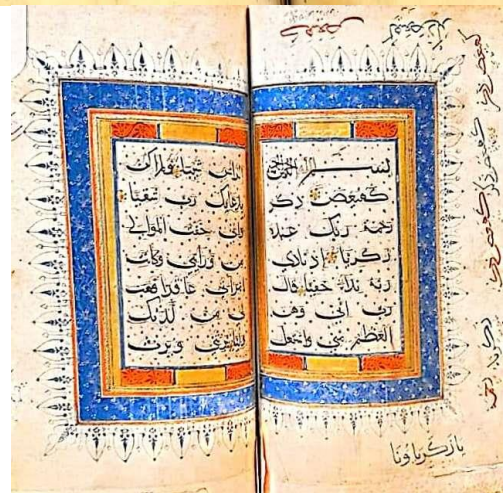 كهيعص
بسم الله الرحمن الرحيم
كهيعص ذكر
رحمة ربك عبده
زكريا اذ نادى
ربه نداء خفيا قال
رب انى وهن
العظم منى واشتعل
الراس شيبا ولم اكن
بدعائك رب شقيا
وانى خفت الموالى
من ورائى وكانت
امراتى عاقرا فهب
لى من لدنك
وليا يرثنى ويرث